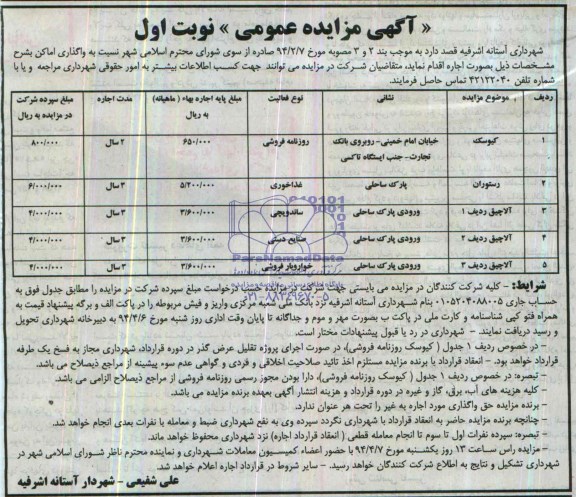 « آگهی مزایده عمومی » نوبت اول
شهرداری آستانه اشرفیه قصد دارد به موجب بند ۲ و ۳ مصوبه مورخ ۹۴/۲/۷ صادره از سوی شورای محترم اسلامی شهر نسبت به واگذاری اماکن بشرح
مشخصات ذیل بصورت اجاره اقدام نماید، متقاضیان شرکت در مزایده می توانند جهت کسب اطلاعات بیشتر به امور حقوقی شهرداری مراجعه و یا با
شماره تلفن ۴۲۱۲۲۰۴۰ تماس حاصل فرمایند.
ردیف موضوع مزایده نشانی نوع فعالیت مبلغ پایه اجاره بهاء ( ماهیانه) به ریال مدت اجاره مبلغ سپرده شرکت در مزایده به ریال
۱ کیوسک خیابان امام خمینی- روبروی بانک تجارت- جنب ایستگاه تاکسی روزنامه فروشی ۶۵۰/۰۰۰ ۲ سال ۸۰۰/۰۰۰
۲ رستوران پارک ساحلی غذاخوری ۵/۲۰۰/۰۰۰ ۳ سال ۶/۰۰۰/۰۰۰
۳ آلاچیق ردیف ۱ ورودی پارک ساحلی ساندویچی ۳/۶۰۰/۰۰۰ ۳ سال ۴/۰۰۰/۰۰۰
۴ آلاچیق ردیف ۲ ورودی پارک ساحلی صنایع دستی ۳/۶۰۰/۰۰۰ ۳ سال ۴/۰۰۰/۰۰۰
۵ آلاچیق ردیف ۳ ورودی پارک ساحلی خواروبار فروشی ۳/۶۰۰/۰۰۰ ۳ سال ۴/۰۰۰/۰۰۰
ParsNamadData
۰۲۱-۸۸۳۴۹۶۷۰-۵
شرایط: - کلیه شرکت کنندگان در مزایده می بایستی جهت شرکت در مزایده حین درخواست مبلغ سپرده شرکت در مزایده را مطابق جدول فوق به
حساب جاری ۰۱۰۵۲۰۴۰۸۸۰۰۵ بنام شهرداری آستانه اشرفیه نزد بانک ملی شعبه مرکزی واریز و فیش مربوطه را در پاکت الف و برگه پیشنهاد قیمت به
همراه فتو کپی شناسنامه و کارت ملی در پاکت ب بصورت مهر و موم و جداگانه تا پایان وقت اداری روز شنبه مورخ ۹۴/۴/۶ به دبیرخانه شهرداری تحویل
و رسید دریافت نمایند. - شهرداری در رد یا قبول پیشنهادات مختار است.
- در خصوص ردیف ۱ جدول ( کیوسک روزنامه فروشی)، در صورت اجرای پروژه تقلیل عرض گذر در دوره قرارداد، شهرداری مجاز به فسخ یک طرفه
قرارداد خواهد بود. - انعقاد قرارداد با برنده مزایده مستلزم اخذ تائید صلاحیت اخلاقی و فردی و گواهی عدم سوء پیشینه از مراجع ذیصلاح می باشد.
- تبصره: در خصوص ردیف ۱ جدول ( کیوسک روزنامه فروشی)، دارا بودن مجوز رسمی روزنامه فروشی از مراجع ذیصلاح الزامی می باشد.
- کلیه هزینه های آب، برق، گاز و غیره در دوره قرارداد و هزینه انتشار آگهی بعهده برنده مزایده می باشد.
- برنده مزایده حق واگذاری مورد اجاره به غیر را تحت هر عنوان ندارد.
- چنانچه برنده مزایده حاضر به انعقاد قرارداد با شهرداری نگردد سپرده وی به نفع شهرداری ضبط و معامله با نفرات بعدی انجام خواهد شد.
- تبصره: سپرده نفرات اول تا سوم تا انجام معامله قطعی ( انعقاد قرارداد اجاره) نزد شهرداری محفوظ خواهد ماند.
- مزایده راس ساعت ۱۳ روز یکشنبه مورخ ۹۴/۴/۷ با حضور اعضاء کمیسیون معاملات شهرداری و نماینده محترم ناظر شورای اسلامی شهر در
شهرداری تشکیل و نتایج به اطلاع شرکت کنندگان خواهد رسید. - سایر شروط در قرارداد اجاره اعلام خواهد شد.
علی شفیعی - شهردار آستانه اشرفیه